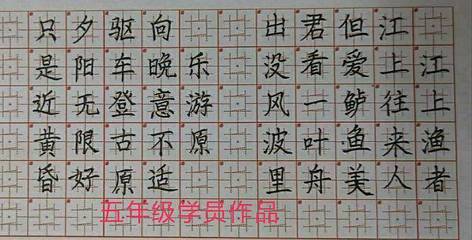 江上渔者
江上往来人
但爱鲈鱼美
君看一叶舟
出没风波里
乐游原
向晚意不适
驱车登古原
夕阳无限好
只是近黄昏
五年级学员作品